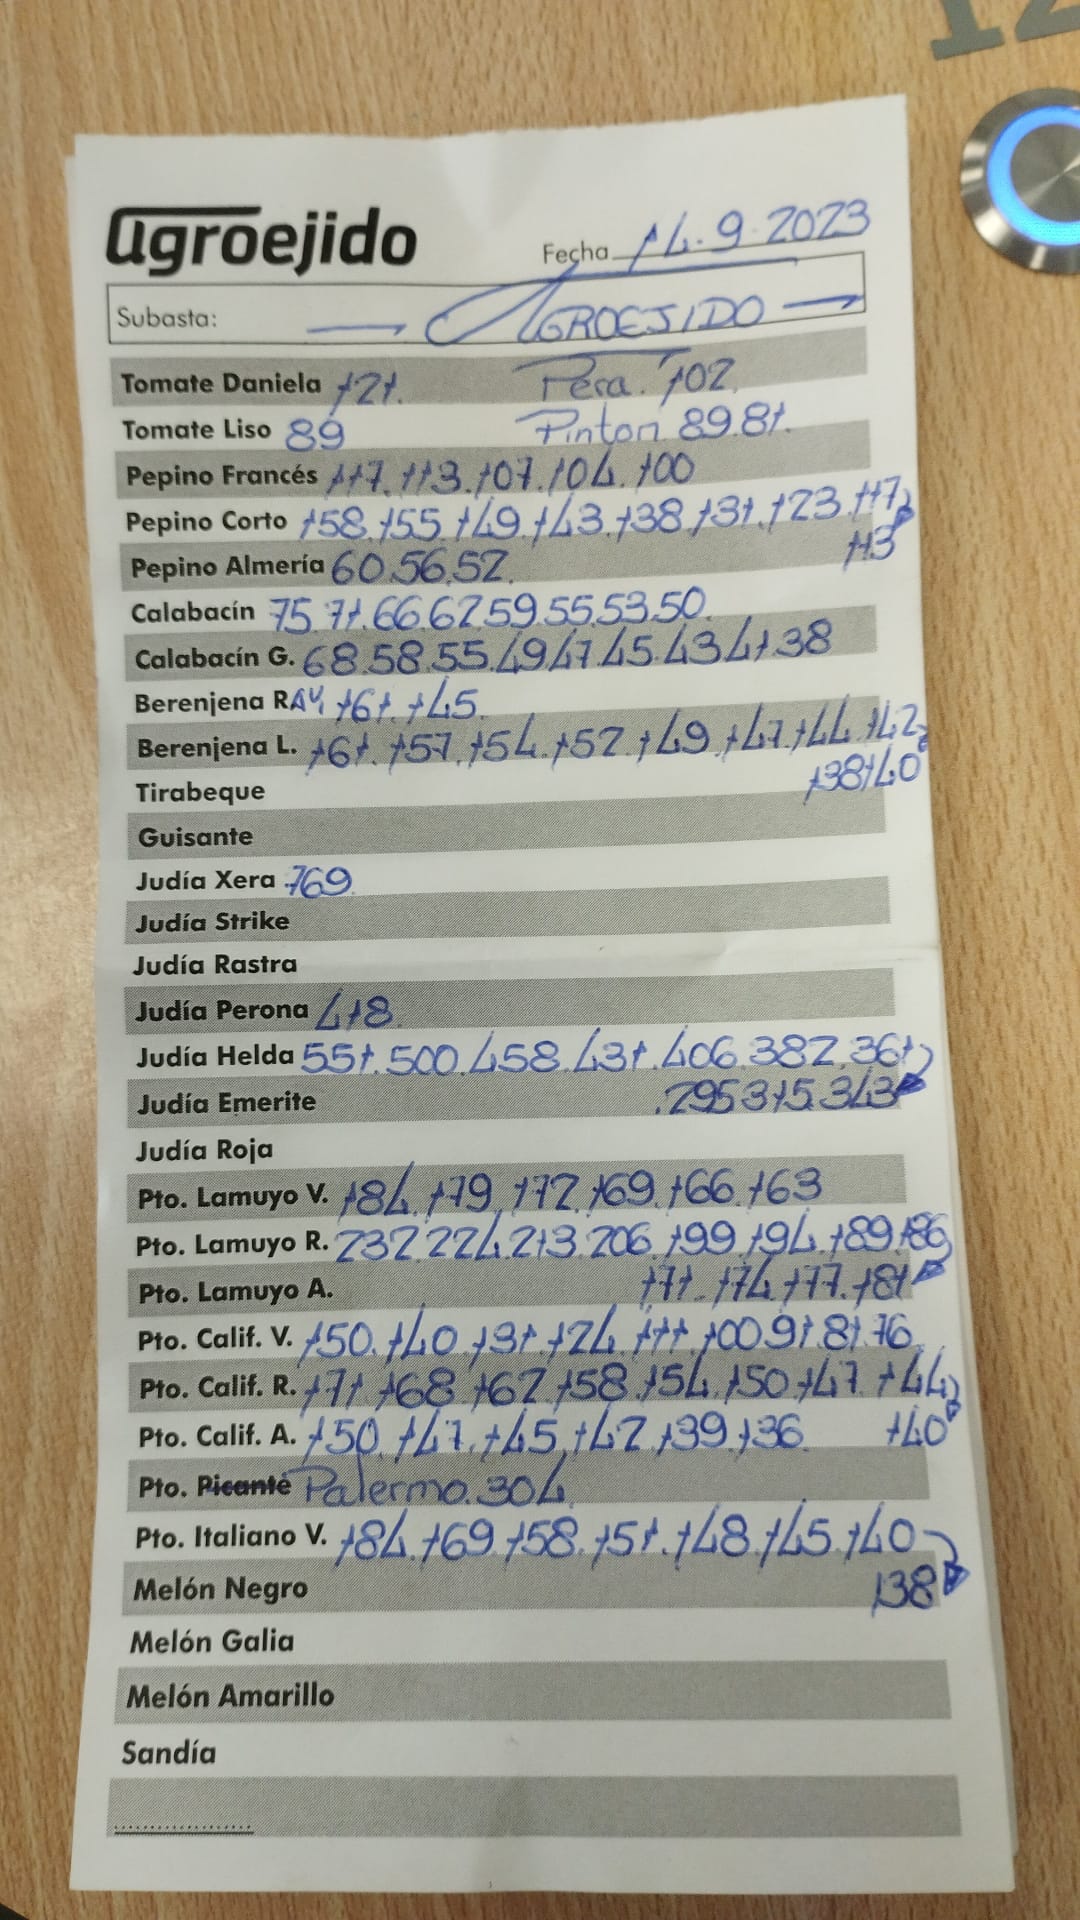 agroejido
Fecha 14.9.2023
Subasta: AGROEJIDO
Tomate Daniela 121. Pera. 102.
Tomate Liso 89 Pinton 89.81.
Pepino Francés 117.113.107.104.100
Pepino Corto 158.155.149.143.138.131.123.117
113
Pepino Almería 60.56.52.
Calabacín 75.71.66.62.59.55.53.50.
Calabacín G. 68.58.55.49.47.45.43.41.38
Berenjena RAY 161.145.
Berenjena L. 161.157.154.152.149.147.144.142
138.140
Tirabeque
Guisante
Judía Xera 769
Judía Strike
Judía Rastra
Judía Perona 418
Judía Helda 551.500.458.431.406.382.361
.295.315.343
Judía Emerite
Judía Roja
Pto. Lamuyo V. 184.179.172.169.166.163
Pto. Lamuyo R. 232.224.213.206.199.194.189.186
171.174.177.181
Pto. Lamuyo A.
Pto. Calif. V. 150.140.131.124.111.100.91.81.76
Pto. Calif. R. 171.168.162.158.154.150.147.144
140
Pto. Calif. A. 150.147.145.142.139.136
Pto. Picante Palermo.304
Pto. Italiano V. 184.169.158.151.148.145.140
138
Melón Negro
Melón Galia
Melón Amarillo
Sandía